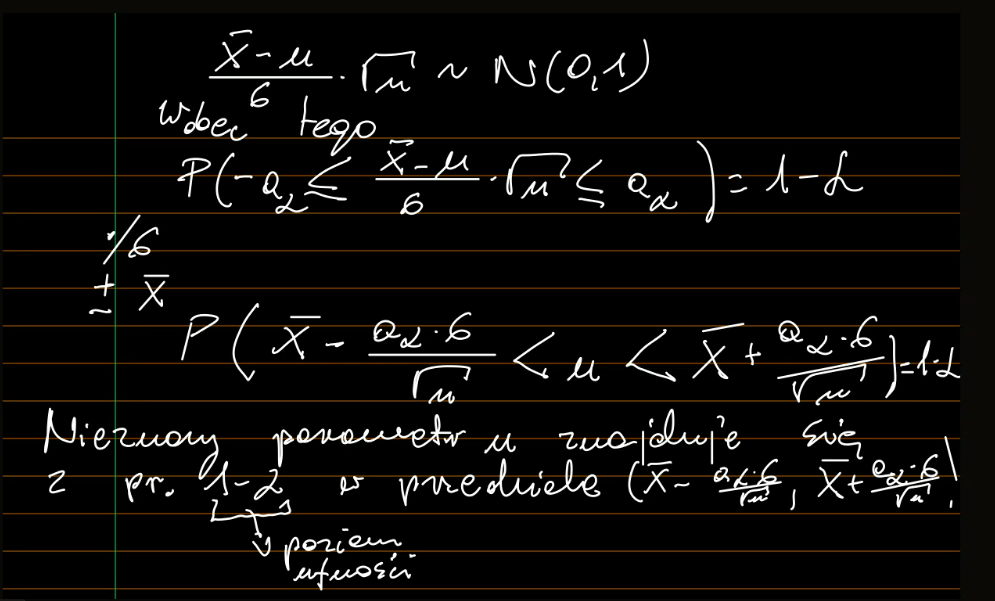 X̄ - μ / 6 · √n ~ N(0,1)
Wobec tego
P(-a_α ≤ X̄ - μ / 6 · √n ≤ a_α) = 1 - α
·/6
± X̄
P(X̄ - a_α·6 / √n < μ < X̄ + a_α·6 / √n) = 1-α
Nieznany parametr μ znajduje się
z pr. 1-α w przedziale (X̄ - a_α·6 / √n, X̄ + a_α·6 / √n)
poziom
ufności